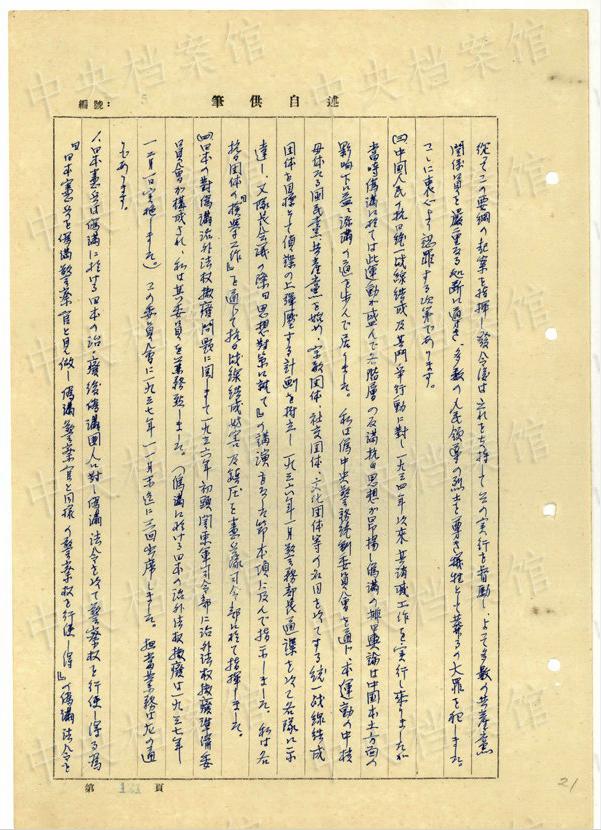 述自供筆
編號：
従てこの要綱の起案を指揮し発令後は之れを支持してその実行を督励し、よて多数の共産党
関係員を厳重なる処断に遇はせ、多数の人民領導の烈士を尊き犠牲として葬るの大罪を犯しました。
こゝに衷心より認罪する次第であります。
(三)中国人民の抗日統一戦線結成及其斗争行動に対し一九三四年以来其消滅工作を実行し来りましたが
当時偽満に於ては此運動が盛んで各階層の反満抗日思想が昂揚し偽満の輿論は中国本土方面の
影响下に の道を歩んで居りました。私は偽中央警務統制委員会を通じ本運動の中核
母体たる国民党共産党を始め、宗教団体、社交団体、文化団体等の名目を以てする統一戦線結成
団体を目標として偵諜の上弾圧する計画を樹立し一九三六年一月警務部長通諜を以て各隊に示
達し、又隊長会議の際『思想対策に就て』の講演を 本項に及んで指示しました。私は各
抗日団体の『 工作』を通じて抗日戦線結成妨害及鎮圧を憲兵隊司令部に於て指揮しました。
(四)日本の対偽満治外法権撤廃問題に関しまして一九三六年初頭関東軍司令部に治外法権撤廃準備委
員会が構成され、私は其委員を兼務致しました。（偽満に於ける日本の治外法権撤廃は一九三七年
一二月一日実施しました）この委員会に一九三七年一一月末迄に三回出席しました。担当業務は左の通
りであります。
八、日本憲兵は偽満に於ける日本の治廃後偽満国人に対し偽満法令を以て警察権を行使し得る為
『日本憲兵を偽満警察官と見做し偽満警察官と同様の警察権を行使し得』の偽満法令を
第 121 頁
21
中央档案馆